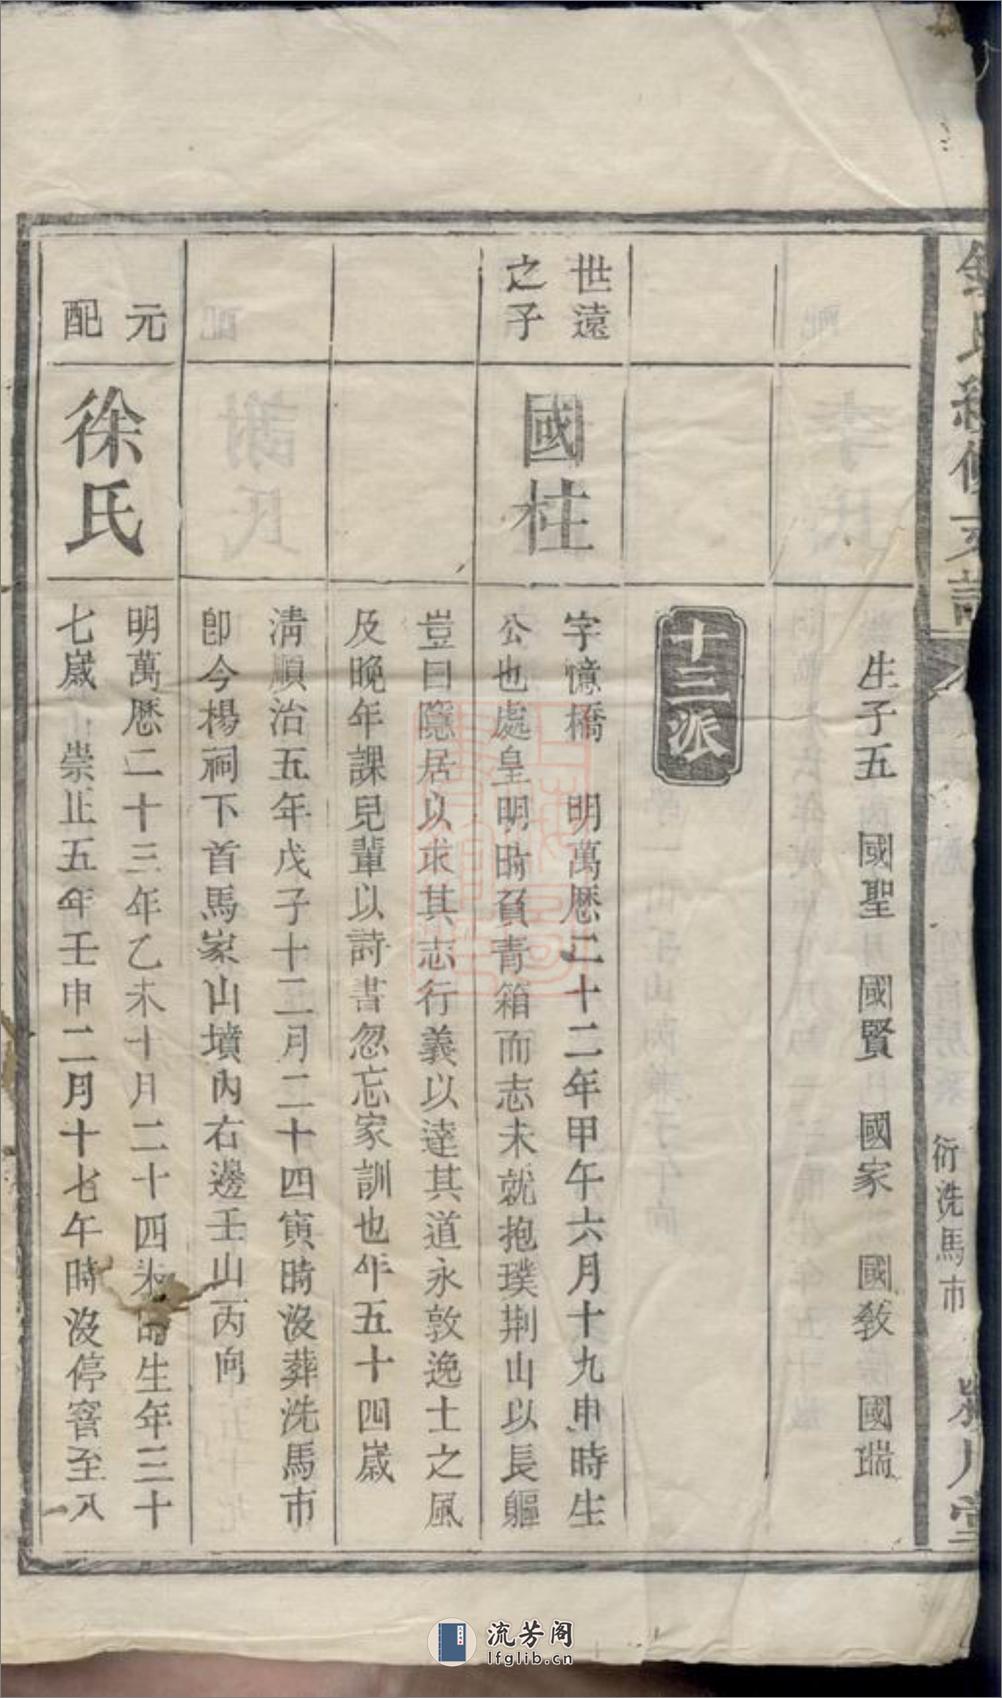 氏續修支譜
衍洗馬市
堂
生子五　國聖　國賢　國家　國教　國瑞
十三派
世遠
之子
國柱
字憶橋　明萬厯二十二年甲午六月十九申時生
公也處皇明時負青箱而志未就抱璞荆山以長軀
豈曰隱居以求其志行義以達其道永敦逸士之風
及晚年課兒輩以詩書忽忘家訓也年五十四歲
淸順治五年戊子十二月二十四寅時沒葬洗馬市
卽今楊祠下首馬家山墳內右邊壬山丙向
元
配
徐氏
明萬厯二十三年乙未十月二十四生年三十
七歲崇正五年壬申二月十七午時沒停窖至八
流芳阁
lfglib.cn